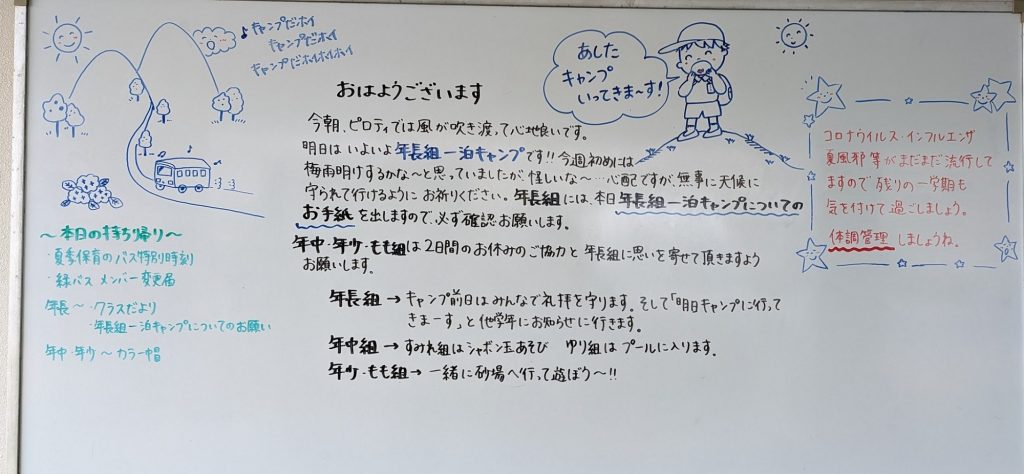 ♪キャンプだホイ
キャンプだホイ
キャンプだホイホイホイ
あした
キャンプ
いってきま〜す!
おはようございます
今朝、ピロティでは風が吹き渡って心地良いです。
明日はいよいよ年長組一泊キャンプです!!今週初めには
梅雨明けするかな〜と思っていましたが、怪しいな〜…心配ですが、無事に天候に
守られて行けるようにお祈りください。年長組には、本日年長組一泊キャンプについての
お手紙を出しますので、必ず確認お願いします。
年中・年少・もも組は2日間のお休みのご協力と年長に思いを寄せて頂きますよう
お願いします。
年長組→キャンプ前日はみんなで礼拝を守ります。そして「明日キャンプに行って
きまーす」と他学年にお知らせに行きます。
年中組→すみれ組はシャボン玉あそび ゆり組はプールに入ります。
年少・もも組→一緒に砂場へ行って遊ぼう〜!!
〜本日の持ち帰り〜
・夏季保育のバス特別時刻
・緑バス メンバー変更届
年長〜・クラスだより
・年長組一泊キャンプについてのお願い
年中・年少〜カラー帽
コロナウイルス・インフルエンザ
夏風邪等がまだまだ流行して
ますので残りの一学期も
気を付けて過ごしましょう。
体調管理しましょうね。